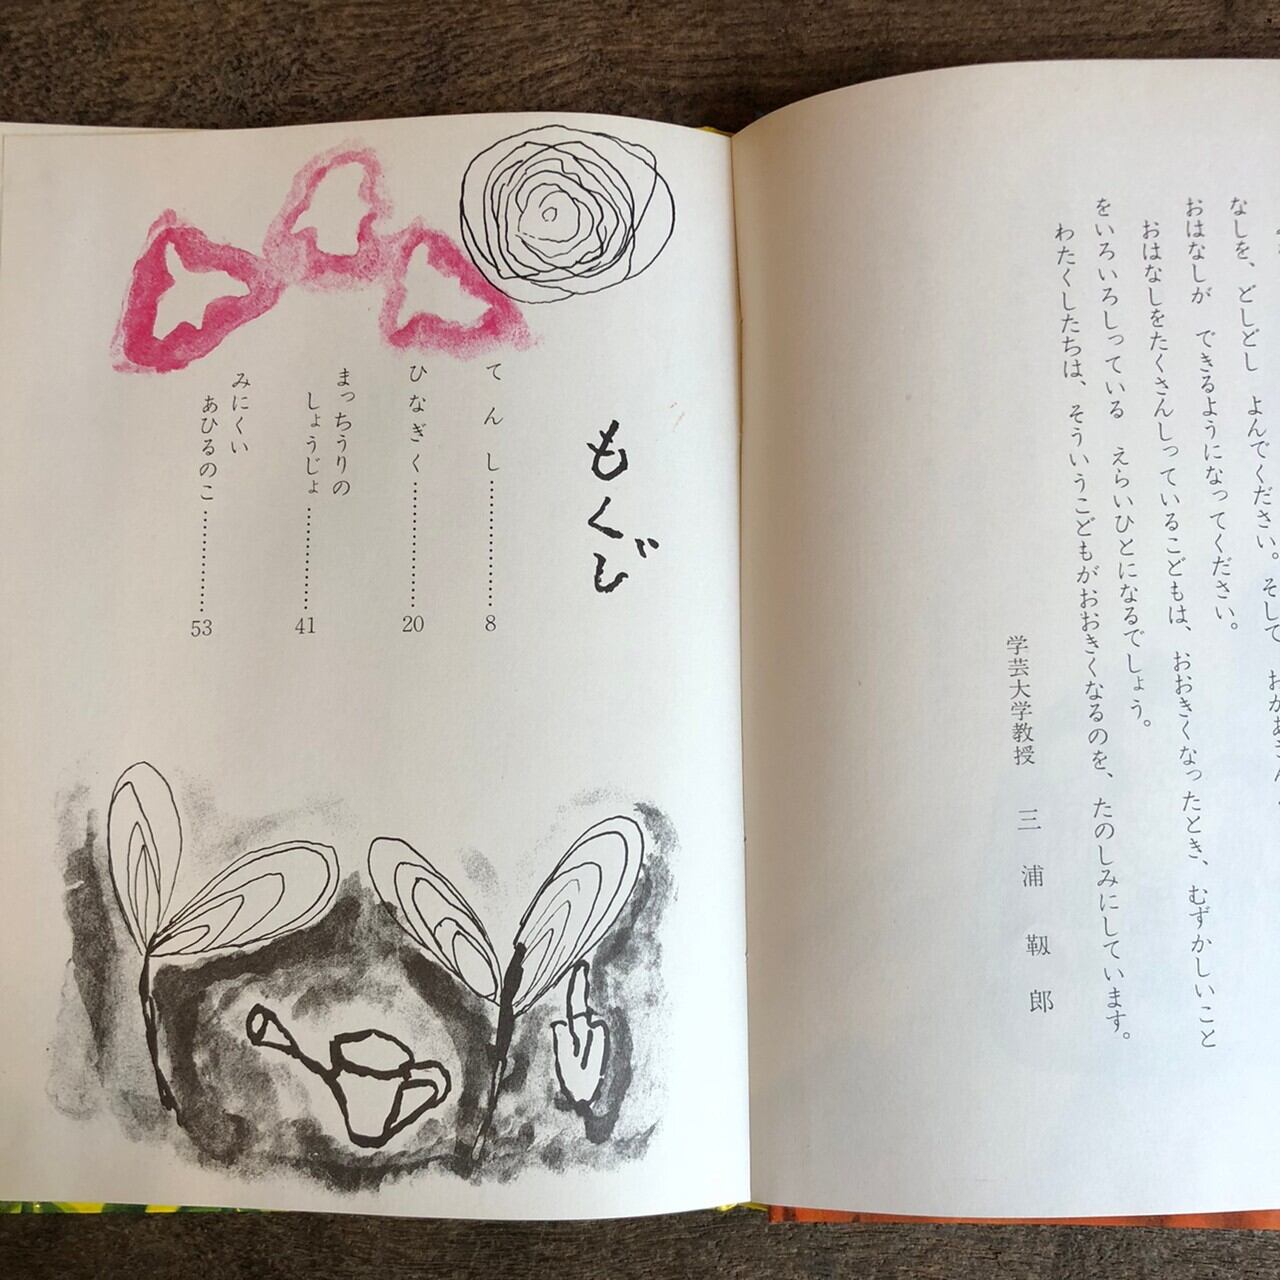 なしを、どしどし よんでください。そして おかあさん
おはなしが できるようになってください。
おはなしをたくさんしっているこどもは、おおきくなったとき、むずかしいこと
をいろいろしっている えらいひとになるでしょう。
わたくしたちは、そういうこどもがおおきくなるのを、たのしみにしています。
学芸大学教授 三浦靱郎
もくじ
てんし…………8
ひなぎく…………20
まっちうりの
しょうじょ…………41
みにくい
あひるのこ…………53